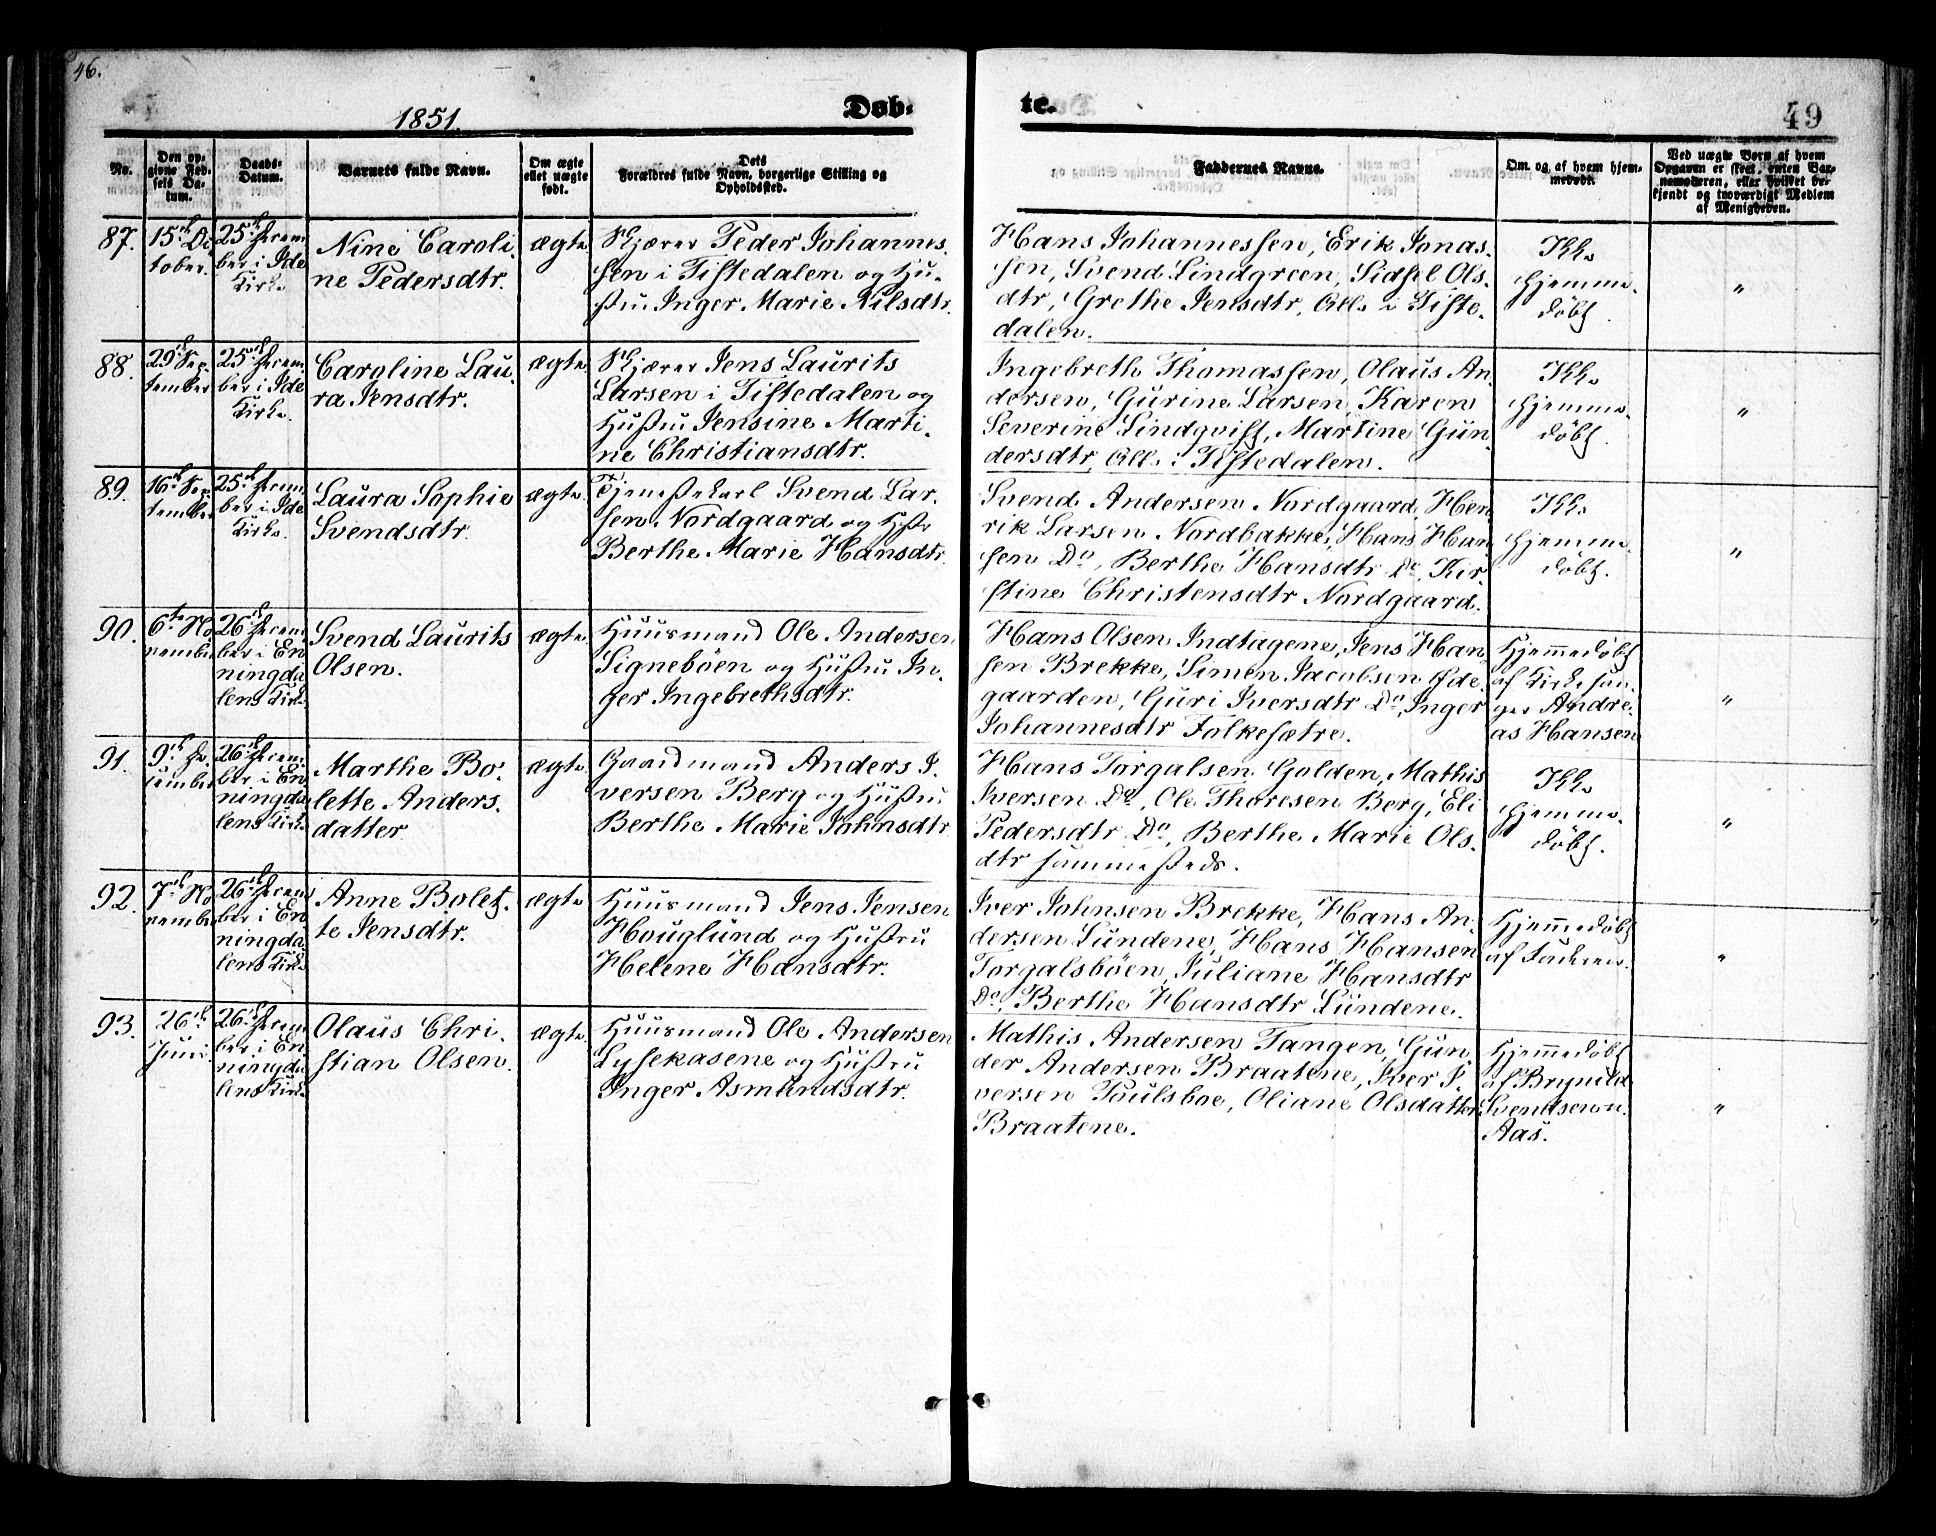 46.
1851.
Døb-
te.
49
No.
Den op-
givne Fød-
sels Da-
tum.
Daabs-
Datum.
Barnets fulde Navn.
Om ægte
eller uægte
født.
Dets
Forældres fulde Navn, borgerlige Stilling og
Opholdssted.
Faddernes Navne.
Om og af hvem hjem-
medøbt.
Ved uægte Børn af hvem
Opgaven er skeet, enten Bar-
nemoderen, eller hvilket be-
kjendt og troværdigt Medlem
af Menigheden.
87.
15de Oc
tober.
25de Decem
ber i Ide
Kirke
Nine Caroli-
ne Pedersdtr.
ægte
Skjærer Peder Johannes-
sen i Tistedalen og Hu-
stru Inger Marie Nilsdtr.
Hans Johannessen, Erik Jonas-
sen, Svend Lindgreen, Sidsel Ols-
dtr, Grethe Jensdtr, Alle i Tiste-
dalen.
Ikke
hjemme-
døbt.
"
88.
29de Sep-
tember
25de Decem
ber i Ide
Kirke.
Caroline Lau-
ra Jensdtr.
ægte
Skjærer Jens Laurits
Larsen i Tistedalen og
Hustru Jensine Marti-
ne Christiansdtr.
Ingebreth Thomassen, Olaus An-
dersen, Gurine Larsen, Karen
Severine Lindqvist, Martine Gun-
dersdtr, Alle i Tistedalen.
Ikke
hjemme-
døbt.
"
89.
16de Sep-
tember
25de Decem
ber i Ide
Kirke.
Laura Sophie
Svendsdtr.
ægte
Tjenestekarl Svend Lar-
sen Nordgaard og Hstr
Berthe Marie Hansdtr.
Svend Andersen Nordgaard, Hen-
rik Larsen Nordbakke, Hans Han-
sen Do, Berthe Hansdtr Do, Kir-
stine Christensdtr Nordgaard.
Ikke
hjemme-
døbt.
"
90.
6te No
vember
26de Decem
ber i En
ningda
lens Kirke
Svend Laurits
Olsen.
ægte
Huusmand Ole Andersen
Signebøen og Hustru In-
ger Ingebrethsdtr.
Hans Olsen Indtagene, Jens Han-
sen Brekke, Simen Jacobsen Ide-
gaarden, Guri Iversdtr Do, Inger
Johannesdtr Folkesætre.
Hjemmedøbt
af Kirkesan-
ger Andre-
as Hansen
"
91.
9de De-
cember
26de Decem
ber i En
ningda
lens Kirke
Marthe Bo-
lette Anders-
datter
ægte
Gaardmand Anders I-
versen Berg og Hustru
Berthe Marie Johnsdtr
Hans Torgalsen Golden, Mathis
Iversen Do, Ole Thoresen Berg, Eli
Pedersdtr Do, Berthe Marie Ols-
dtr sammesteds.
Ikke
hjemme-
døbt.
"
92.
7de No
vember
26de Decem
ber i En
ningda
lens Kirke
Anne Bolet-
te Jensdtr.
ægte
Huusmand Jens Jensen
Houglund og Hustru
Helene Hansdtr.
Iver Johnsen Brekke, Hans An-
dersen Lundene, Hans Hansen
Torgalsbøen, Juliane Hansdtr
Do, Berthe Hansdtr Lundene.
Hjemmedøbt
af Faderen.
"
93.
26de
Juni.
26de Decem
ber i En
ningda
lens Kirke
Olaus Chri-
stian Olsen.
ægte
Huusmand Ole Andersen
Lysekasene og Hustru
Inger Asmundsdtr.
Mathis Andersen Tangen, Gun-
der Andersen Braatene, Iver I-
versen Poulsboe, Oliane Olsdatter
Braatene.
Hjemmedøbt
af Brynild
Svendsen u.
Aas.
"